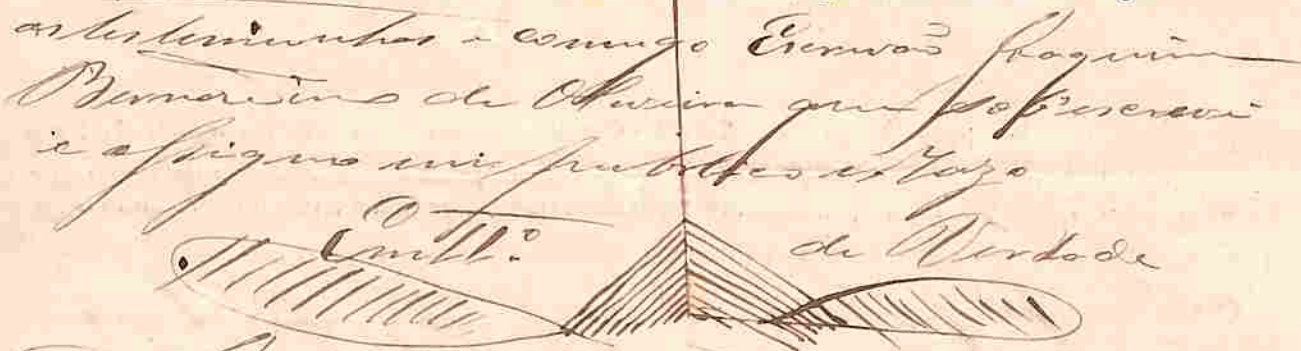 as testemunhas e comigo Escrivão Joaquim
Bernardino de Oliveira que sobescrevi
e assigno em publico e razo
Em Tt.º de Verdade